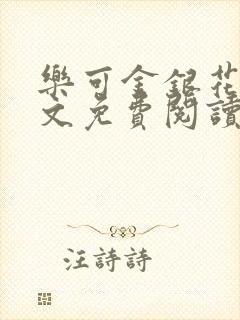 樂可金銀花
文免費閱讀
汪詩詩